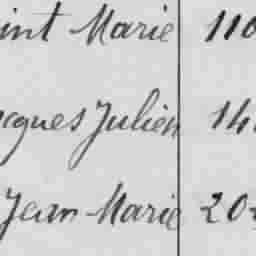 int Marie 110
cques Julien 14
Jean-Marie 204